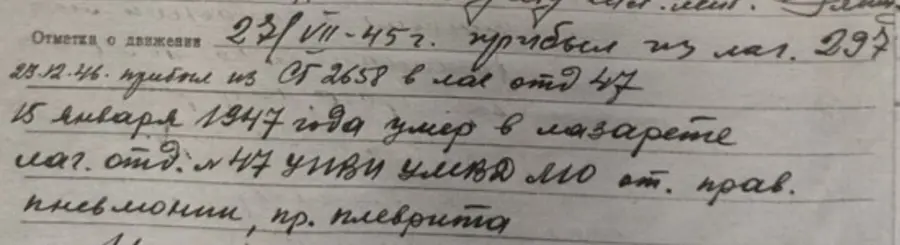 Отметки о движении 27/VII-45г. прибыл из лаг. 297
23.12.46. прибыл из СГ 2658 в лаг отд 47
15 января 1947 года умер в лазарете
лаг. отд. №47 УПВИ УМВД МО от. прав.
пневмонии, пр. плеврита